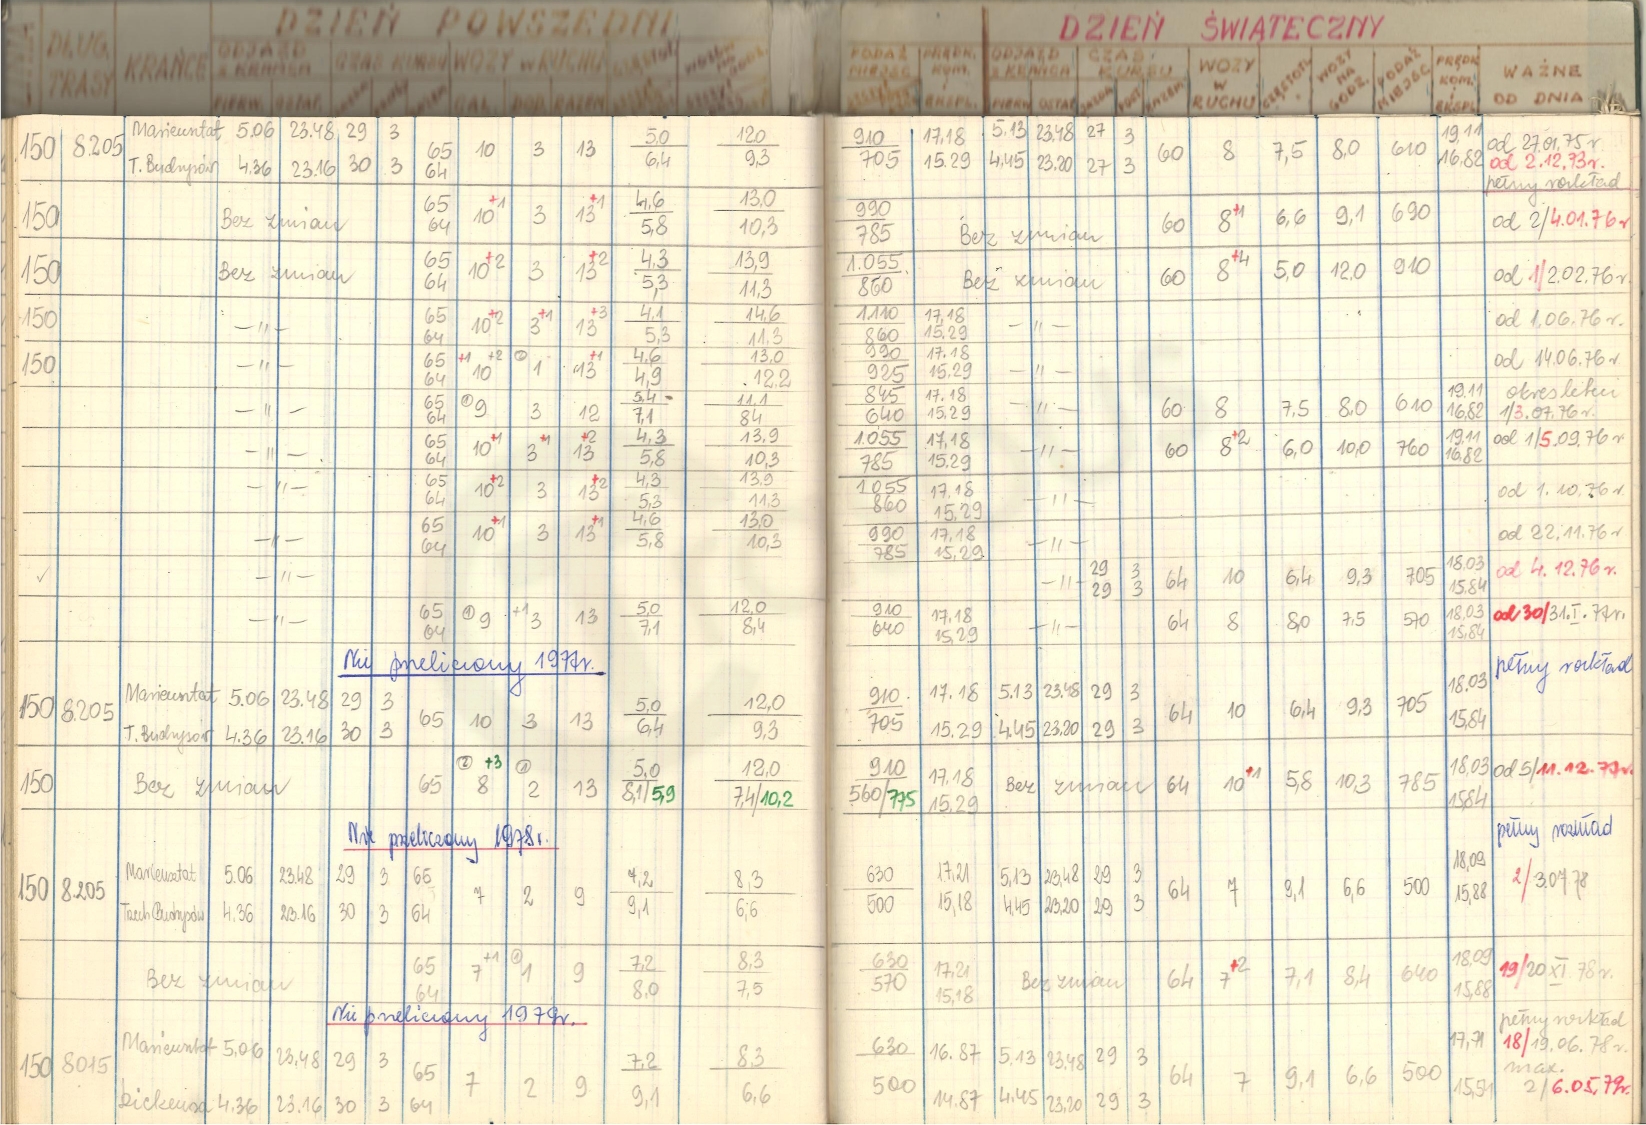 DZIEŃ POWSZEDNI
DZIEŃ ŚWIĄTECZNY
DŁUG. TRASY
KRAŃCE
ODJAZD Z KRAŃCA
CZAS KURSU
WOZY W RUCHU
PODAŻ MIEJSC
PRĘDK. KOM. i EKSPL.
ODJAZD Z KRAŃCA
CZAS KURSU
WOZY W RUCHU
CZĘSTOTL.
WOZY NA GODZ.
PODAŻ MIEJSC
PRĘDK KOM. i EKSPL
WAŻNE OD DNIA
150 8.205 Mariensztat 5.06 23.48 29 3 65 10 3 13 5,0 12,0 910 17,18 5.13 23.48 27 3 60 8 7,5 8,0 610 19,11 od 27.01.75 r.
T. Budrysów 4.36 23.16 30 3 64 6,4 9,3 705 15.29 4.45 23.20 27 3 16,82 od 2.12.73 r.
pełny rozkład
150 Bez zmian 65 10+1 3 13+1 4,6 13,0 990 Bez zmian 60 8+1 6,6 9,1 690 od 2/4.01.76 r
64 5,8 10,3 785
150 Bez zmian 65 10+2 3 13+2 4,3 13,9 1.055 Bez zmian 60 8+4 5,0 12,0 910 od 1/2.02.76 r.
64 5,3 11,3 860
150 —„— 65 10+2 3+1 13+3 4,1 14,6 1.110 17,18 —„— od 1.06.76 r.
64 5,3 11,3 860 15.29
150 —„— 65 +1 10+2 1 13+1 4,6 13,0 990 17.18 —„— od 14.06.76 r.
64 4,9 12,2 925 15.29
—„— 65 9 3 12 5,4 11,1 845 17.18 —„— 60 8 7,5 8,0 610 19.11 okres letni
64 7,1 8,4 640 15.29 16,82 1/3.07.76 r.
—„— 65 10+1 3+1 13+2 4,3 13,9 1.055 17,18 —„— 60 8+2 6,0 10,0 760 19.11 od 1/5.09.76 r
64 5,8 10,3 785 15.29 16.82
—„— 65 10+2 3 13+2 4,3 13,9 1.055 17.18 —„— od 1.10.76 r.
64 5,3 11,3 860 15,29
—„— 65 10+1 3 13+1 4,6 13,0 990 17.18 —„— od 22.11.76 r
64 5,8 10,3 785 15,29
—„— —„— 29 3 64 10 6,4 9,3 705 18.03 od 4.12.76 r.
29 3 15,84
—„— 65 9 +1 3 13 5,0 12,0 910 17,18 —„— 64 8 8,0 7,5 570 18.03 od 30/31.I.77 r.
64 7,1 8,4 640 15,29 15,84
Nie przeliczony 1977 r.
pełny rozkład
150 8.205 Mariensztat 5.06 23.48 29 3 65 10 3 13 5,0 12,0 910 17.18 5.13 23.48 29 3 64 10 6,4 9,3 705 18.03
T. Budrysów 4.36 23.16 30 3 6,4 9,3 705 15.29 4.45 23.20 29 3 15,84
150 Bez zmian 65 8+3 2 13 5,0 12,0 910 17.18 Bez zmian 64 10+1 5,8 10,3 785 18,03 od 5/11.12.77 r.
8,1/5,9 7,4/10,2 560/775 15.29 15,84
Nie przeliczony 1978 r.
pełny rozkład
150 8.205 Mariensztat 5.06 23.48 29 3 65 7 2 9 7,2 8,3 630 17,21 5,13 23,48 29 3 64 7 9,1 6,6 500 18,09 2/3.07.78
Trzech Budrysów 4.36 23.16 30 3 64 9,1 6,6 500 15,18 4.45 23.20 29 3 15,88
Bez zmian 65 7+1 1 9 7,2 8,3 630 17,21 Bez zmian 64 7+2 7,1 8,4 640 18,09 19/20 XI.78 r.
64 8,0 7,5 570 15,18 15,88
Nie przeliczony 1979 r.
pełny rozkład
150 8015 Mariensztat 5.06 23,48 29 3 65 7 2 9 7,2 8,3 630 16.87 5.13 23.48 29 3 64 7 9,1 6,6 500 17,71 18/19.06.78 r.
max.
Dickensa 4.36 23.16 30 3 64 9,1 6,6 500 14.87 4.45 23,20 29 3 15,91 2/6.05.79 r.